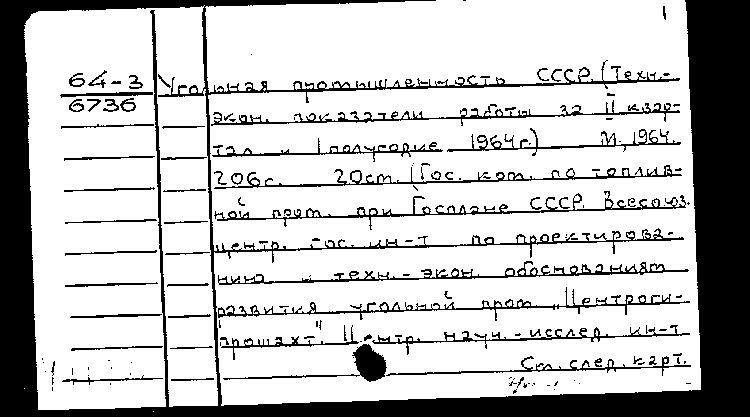 1
64-3 Угольная промышленность СССР. (Техн.-
6736 экон. показатели работы за II квар-
тал и I полугодие 1964г.) М., 1964.
206с. 20см. (Гос. ком. по топлив-
ной пром. при Госплане СССР. Всесоюз.
центр. гос. ин-т по проектирова-
нию и техн.-экон. обоснованиям
развития угольной пром. „Центроги-
прошахт." Центр. науч.-исслед. ин-т
См. след. карт.